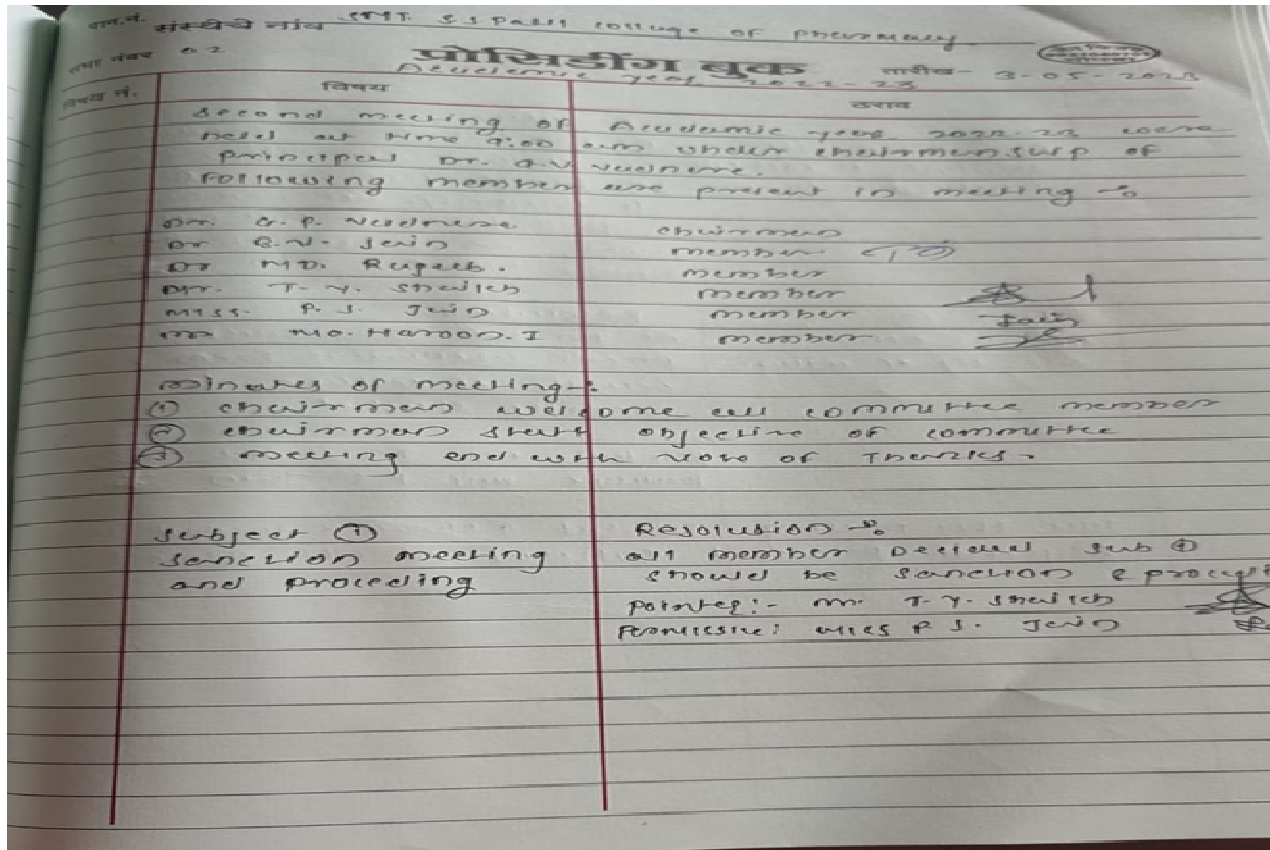 पान.नं. संस्थेचे नांव SMT. S S Patil college of pharmacy
सभा नंबर 02 प्रोसिडींग बुक तारीख- 3-05-2023
Academic year 2022-23
विषय नं. विषय ठराव
Second meeting of Academic year 2022-23 were
held at time 9:00 am under chairmanship of
principal Dr. G. V
Following member are present in meeting -:
Dr. G. P. Vadnere chairman
Dr G.N. Jain member
Dr MD. Rageeb. member
Mr. T. Y. Shaikh member
Miss. P. J. Jain member Jain
Mr Mo. Haroon. I member
Minutes of meeting -:
① chairman welcome all committee member
② chairman start objective of committee
③ meeting end with vote of Thanks.
Subject ① Resolution -:
Sanction meeting all member Decided sub ①
and proceeding should be sanction &
:- Mr. T. Y. Shaikh
: Miss P J. Jain